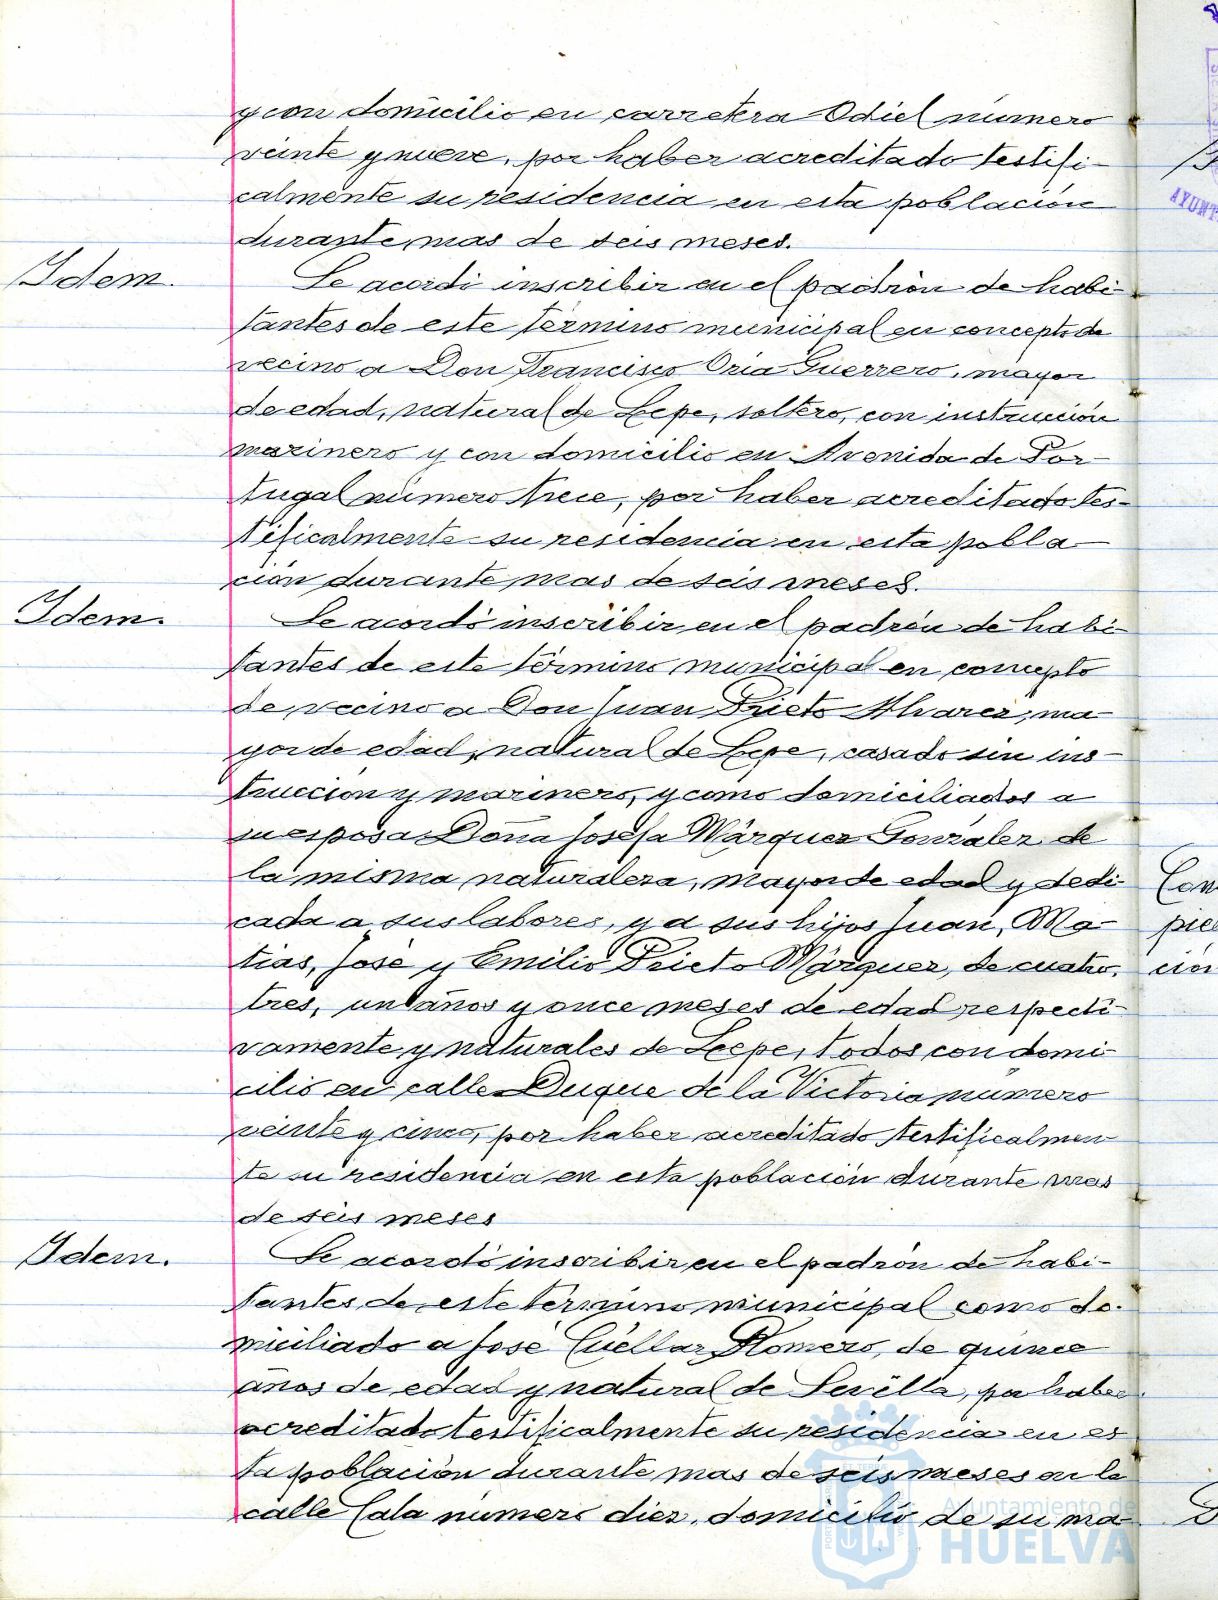 y con domicilio en carretera Odiel número
veinte y nueve, por haber acreditado testifi-
calmente su residencia en esta población
durante mas de seis meses.
Idem.
Se acordi inscribir en el padrón de habi-
tantes de este término municipal en concepto de
vecino a Don Francisco Oria Guerrero, mayor
de edad, natural de Lepe, soltero, con instrucción
marinero y con domicilio en Avenida de Por-
tugal número trece, por haber acreditado tes-
tificalmente su residencia en esta pobla-
ción durante mas de seis meses.
Idem.
Se acordó inscribir en el padrón de habi-
tantes de este término municipal en concepto
de vecino a Don Juan Prieto Alvarez, ma-
yor de edad, natural de Lepe, casado sin ins-
trucción y marinero, y como domiciliados a
su esposa Doña Josefa Márquez González de
la misma naturaleza, mayor de edad y dedi-
cada a sus labores, y a sus hijos Juan, Ma-
tias, José y Emilio Prieto Márquez, de cuatro,
tres, un años y once meses de edad respecti-
vamente y naturales de Lepe, todos con domi-
cilio en calle Duque de la Victoria número
veinte y cinco, por haber acreditado testificalmen
te su residencia en esta población durante mas
de seis meses
Idem.
Se acordó inscribir en el padrón de habi-
tantes de este término municipal como do-
miciliado a José Cuéllar Romero, de quince
años de edad y natural de Sevilla, por haber
acreditado testificalmente su residencia en es
ta población durante mas de seis meses en la
calle Cala número diez, domicilio de su ma-
Ayuntamiento de
HUELVA